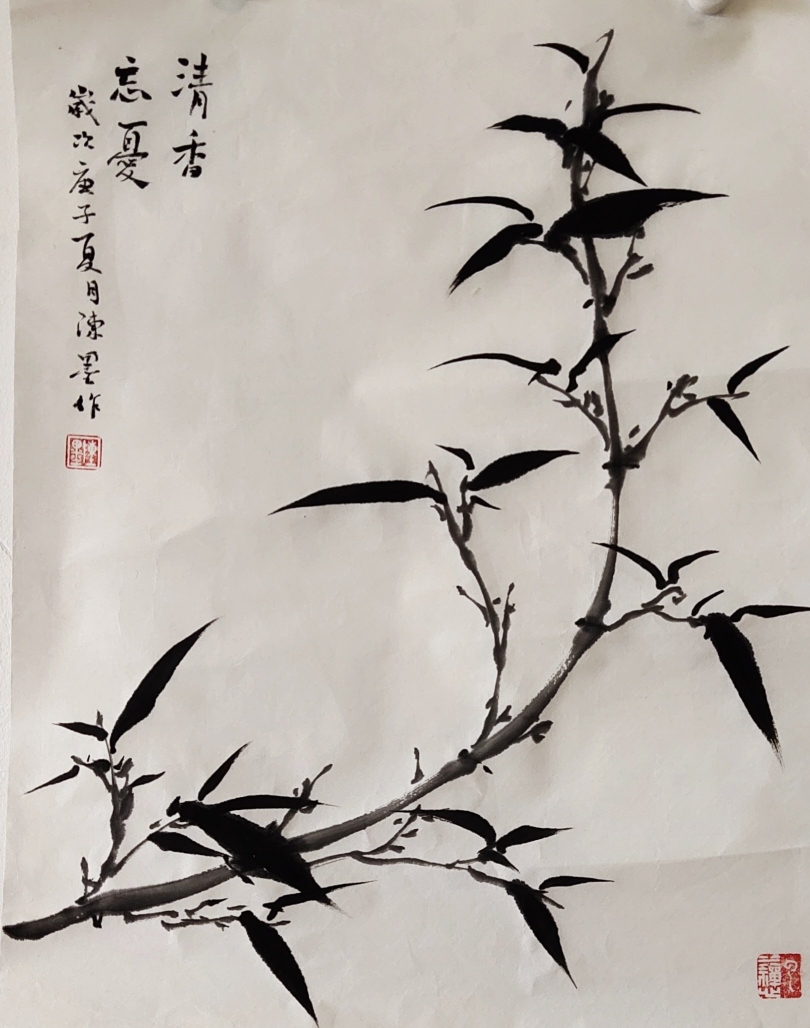 清香
忘憂
歲次庚子夏月陳墨作